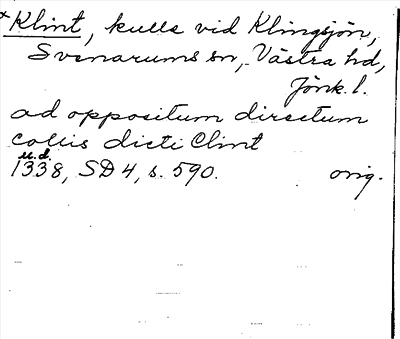 *Klint, kulle vid Klingsjön,
Svenarums sn, Västra hd,
Jönk. l.
ad oppositum directum
collis dicti Clint
u.d.
1338, SD 4, s. 590. orig.